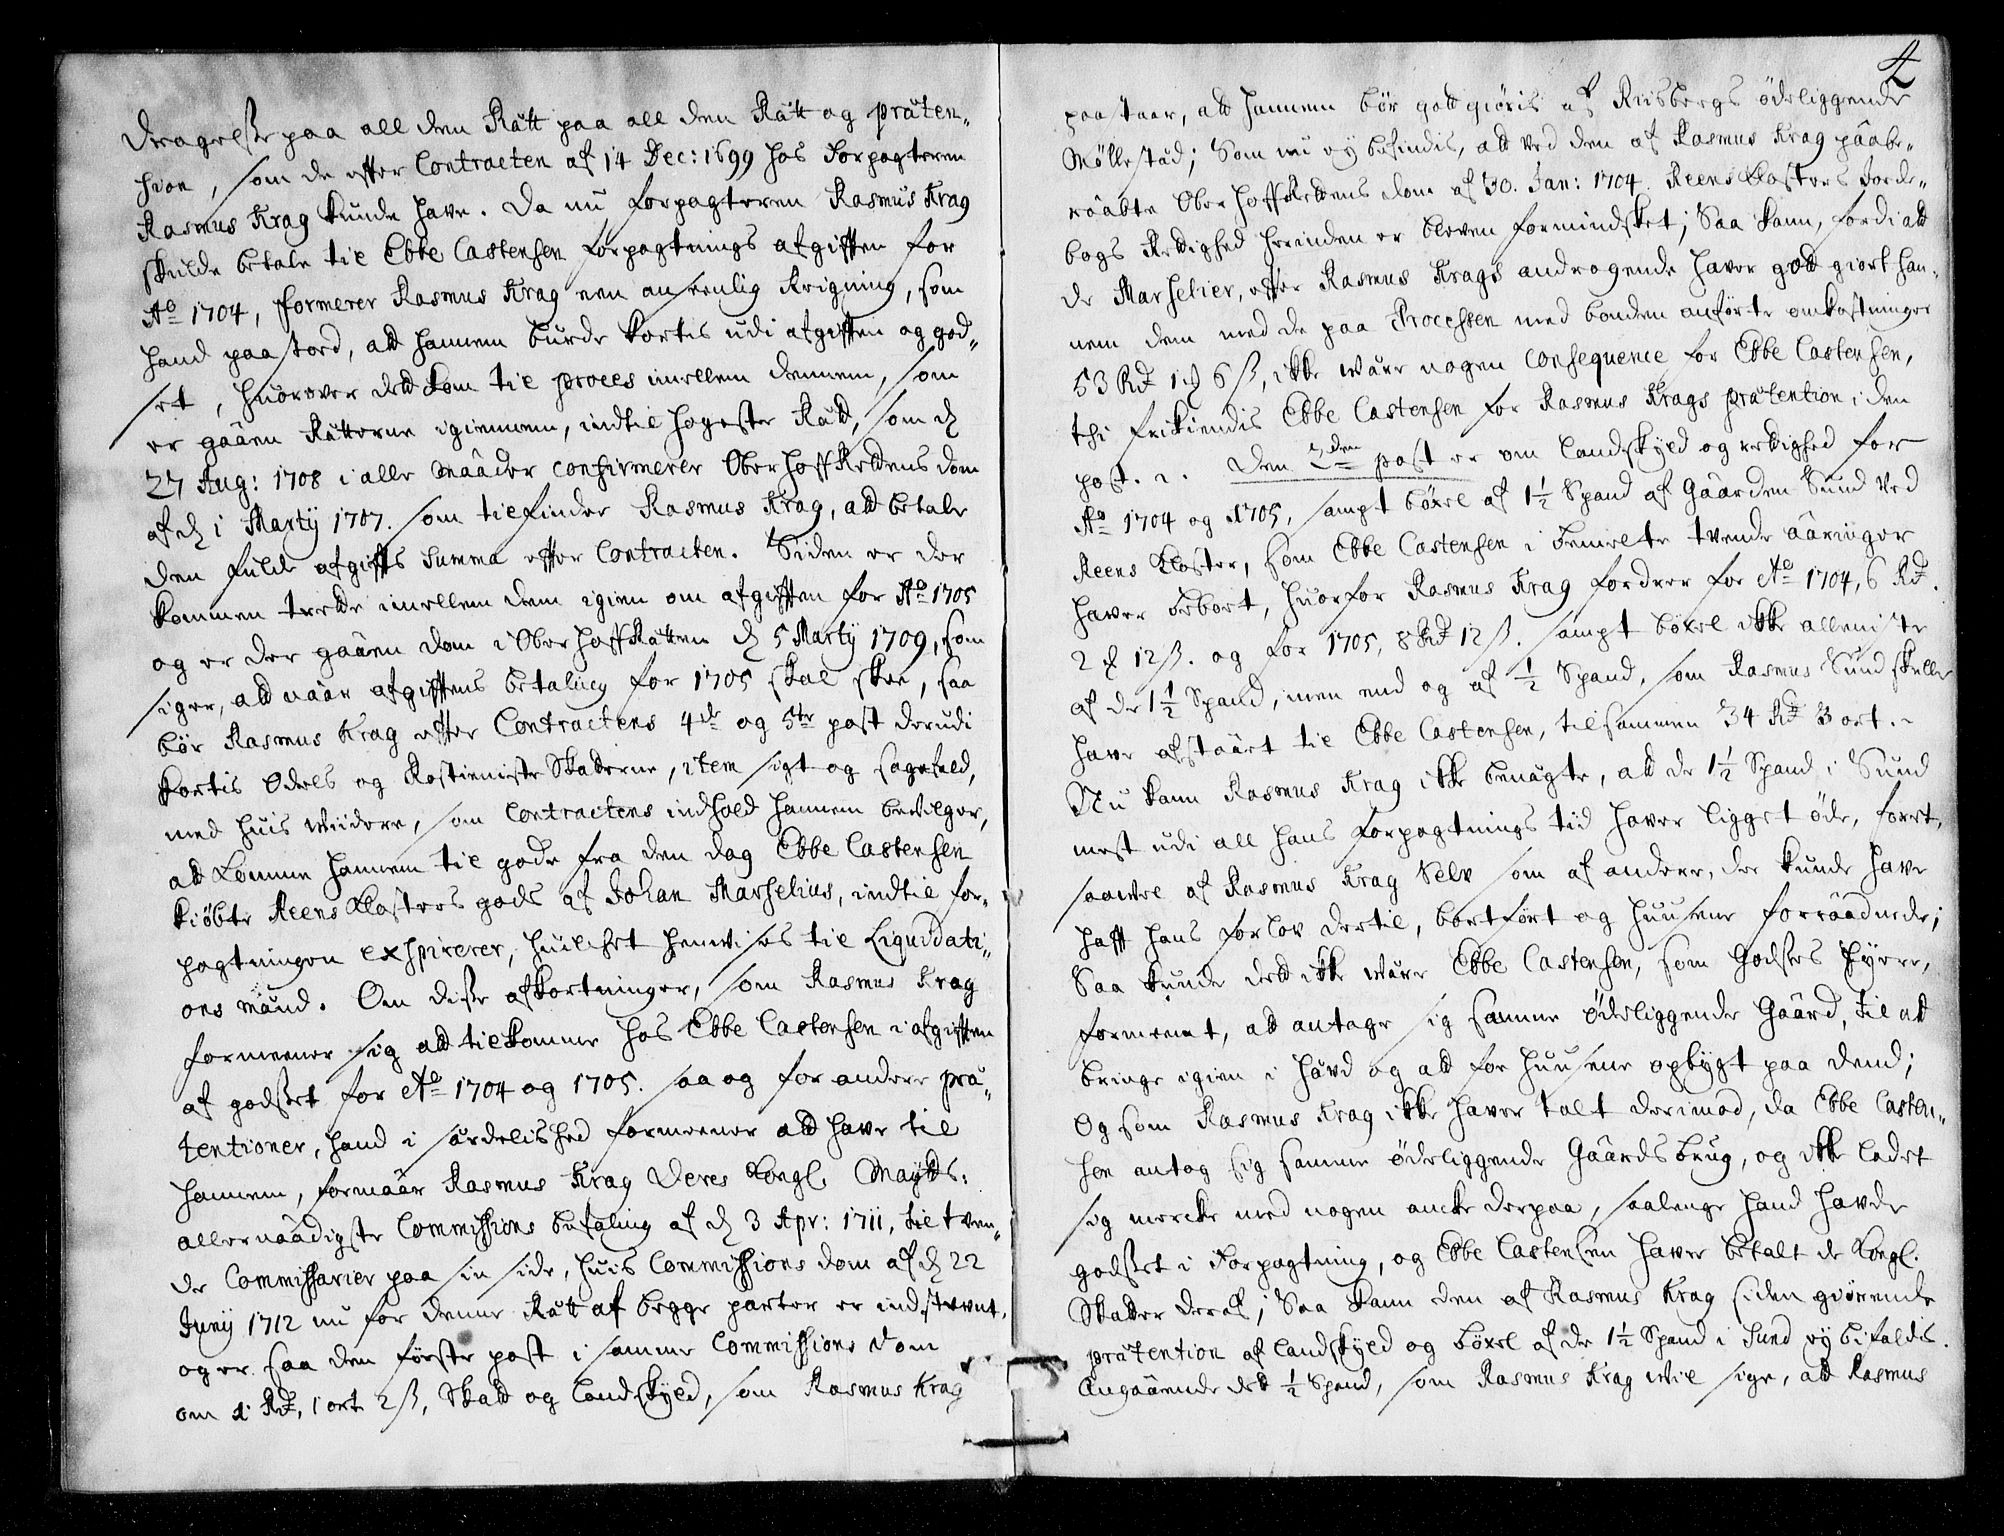 dragelse paa all den Rätt paa all den Rätt og præten-
sion, som de efter Contracten af 14 Dec: 1699 hos Forpagteren
Rasmus Krag kunde have. Da nu forpagteren Rasmus Krag
skulde betale til Ebbe Castensen forpagtnings afgifften for
Ao 1704, formerer Rasmus Krag een anseenlig Reigning, som
hand paastod, att hannem burde kortes udi afgifften og god-
set, huorover dett kom til proces imellem dennem, som
er gaaen Rätterne igiennem, indtil høyeste Rätt, som d
27 Aug: 1708 i alle maader confirmerer OberhoffRettens dom
af d 1 Martij 1707. som tilfinder Rasmus Krag, att betale
den fulde afgiffts Summa efter Contracten. Siden er der
kommen trette imellem dem igien om afgifften for Ao 1705
og er der gaaen dom i OberhoffRätten d 5 Martij 1709, som
siger, att naar afgifftens betaling for 1705 skal skee, saa
bør Rasmus Krag efter Contractens 4de og 5te post derudi
kortis Ødels og Rostieniste Skatterne, item sigt og sagefald,
med huis videre, som Contractens indhold hannem bevilger,
att komme hannem til gode fra den dag Ebbe Castensen
kiøbte Reens Klosters gods af Johan Marselius, indtil for-
pagtningen exspirerer, huilchet henvises til Liquidati-
ons mænd. Om disse afkortninger, som Rasmus Krag
formeener sig att tilkomme hos Ebbe Castensen i afgifften
af godset for Ao 1704 og 1705. saa og for andere præ-
tentioner, hand i særdelished formeener att have til
hannem, formaar Rasmus Krag Deres Kongl. Maytts:
allernaadigste Commissions befaling af d 3 Apr: 1711, til tven-
de Commissarier paa sin side, huis Commissions dom af d 22
Junij 1712 nu for denne Rätt af begge parter er indstevnt.
og er saa den første post i samme Commissions dom
om 1 Rd, 1 ort 2 ß, Skatt og landskyld, som Rasmus Krag
4
paastaar, att hannem bør gott giøris af Riisbergs ødeliggende
Møllestäd; Som nu ey befindis, att ved den af Rasmus Krag paabe-
raabte OberhoffRettens dom af 30. Jan: 1704. Reens Klosters Jorde-
bogs Rettighed herinden er bleven formindsket; Saa kann, fordi att
de Marselier, efter Rasmus Krags andragende haver gott giort han-
nem dem med de paa Processen med bonden anførte omkostninger
53 Rd 1 6 ß, ikke være nogen consequence for Ebbe Castensen,
thi frikiendis Ebbe Castensen for Rasmus Krags prætention i den
post. Den 2den post er om landskyld og rettighed for
Ao 1704 og 1705, sampt bøxel af 1½ Spand af Gaarden Sund ved
Reens Kloster, som Ebbe Castensen i bemelte tvende aaringer
haver bebort, huorfor Rasmus Krag fordrer for Ao 1704, 6 Rd.
2 12 ß. og for 1705, 8 Rd 12 ß. sampt bøxel ikke alleniste
af de 1½ Spand, men end og af ½ Spand, som Rasmus Sund skulle
have afstaaet til Ebbe Castensen, tilsammen 34 Rd 3 ort.
Nu kann Rasmus Krag ikke benägte, att de 1½ Spand i Sund
mest udi all hans forpagtnings tid haver ligget øde, foret,
saavel af Rasmus Krag selv som af andere, der kunde have
hafft hans forlov dertil, bortført og huusene forraadnede;
Saa kunde dett ikke være Ebbe Castensen, som Godsets Eyere,
formeent, att antage sig samme ødeliggende Gaard, til att
bringe igien i hävd og att for huusene opbygt paa dend;
Og som Rasmus Krag ikke haver talt derimod, da Ebbe Casten-
sen antog sig samme ødeliggende Gaards brug, og ikke ladet
sig mercke med nogen ancke derpaa, saalenge hand havde
godset i Forpagtning, og Ebbe Castensen haver betalt de Kongl.
Skatter deraf; Saa kann den af Rasmus Krag siden giørende
prætention af landskyld og bøxel af de 1½ Spand i Sund ey bifaldis.
Angaaende det ½ Spand, som Rasmus Krag vil sige, att Rasmus